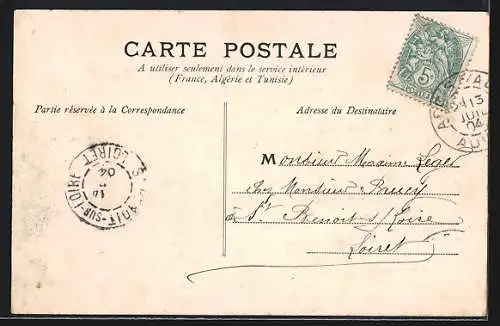 CARTE POSTALE
A utiliser seulement dans le service intérieur
(France, Algérie et Tunisie)
Partie réservée à la Correspondance
Adresse du Destinataire
Monsieur
chez Monsieur
à St Benoit s/ Loire
Loiret
5
13
JUIL
04
AUBE
LOIRET
04
-SUR-LOIRE